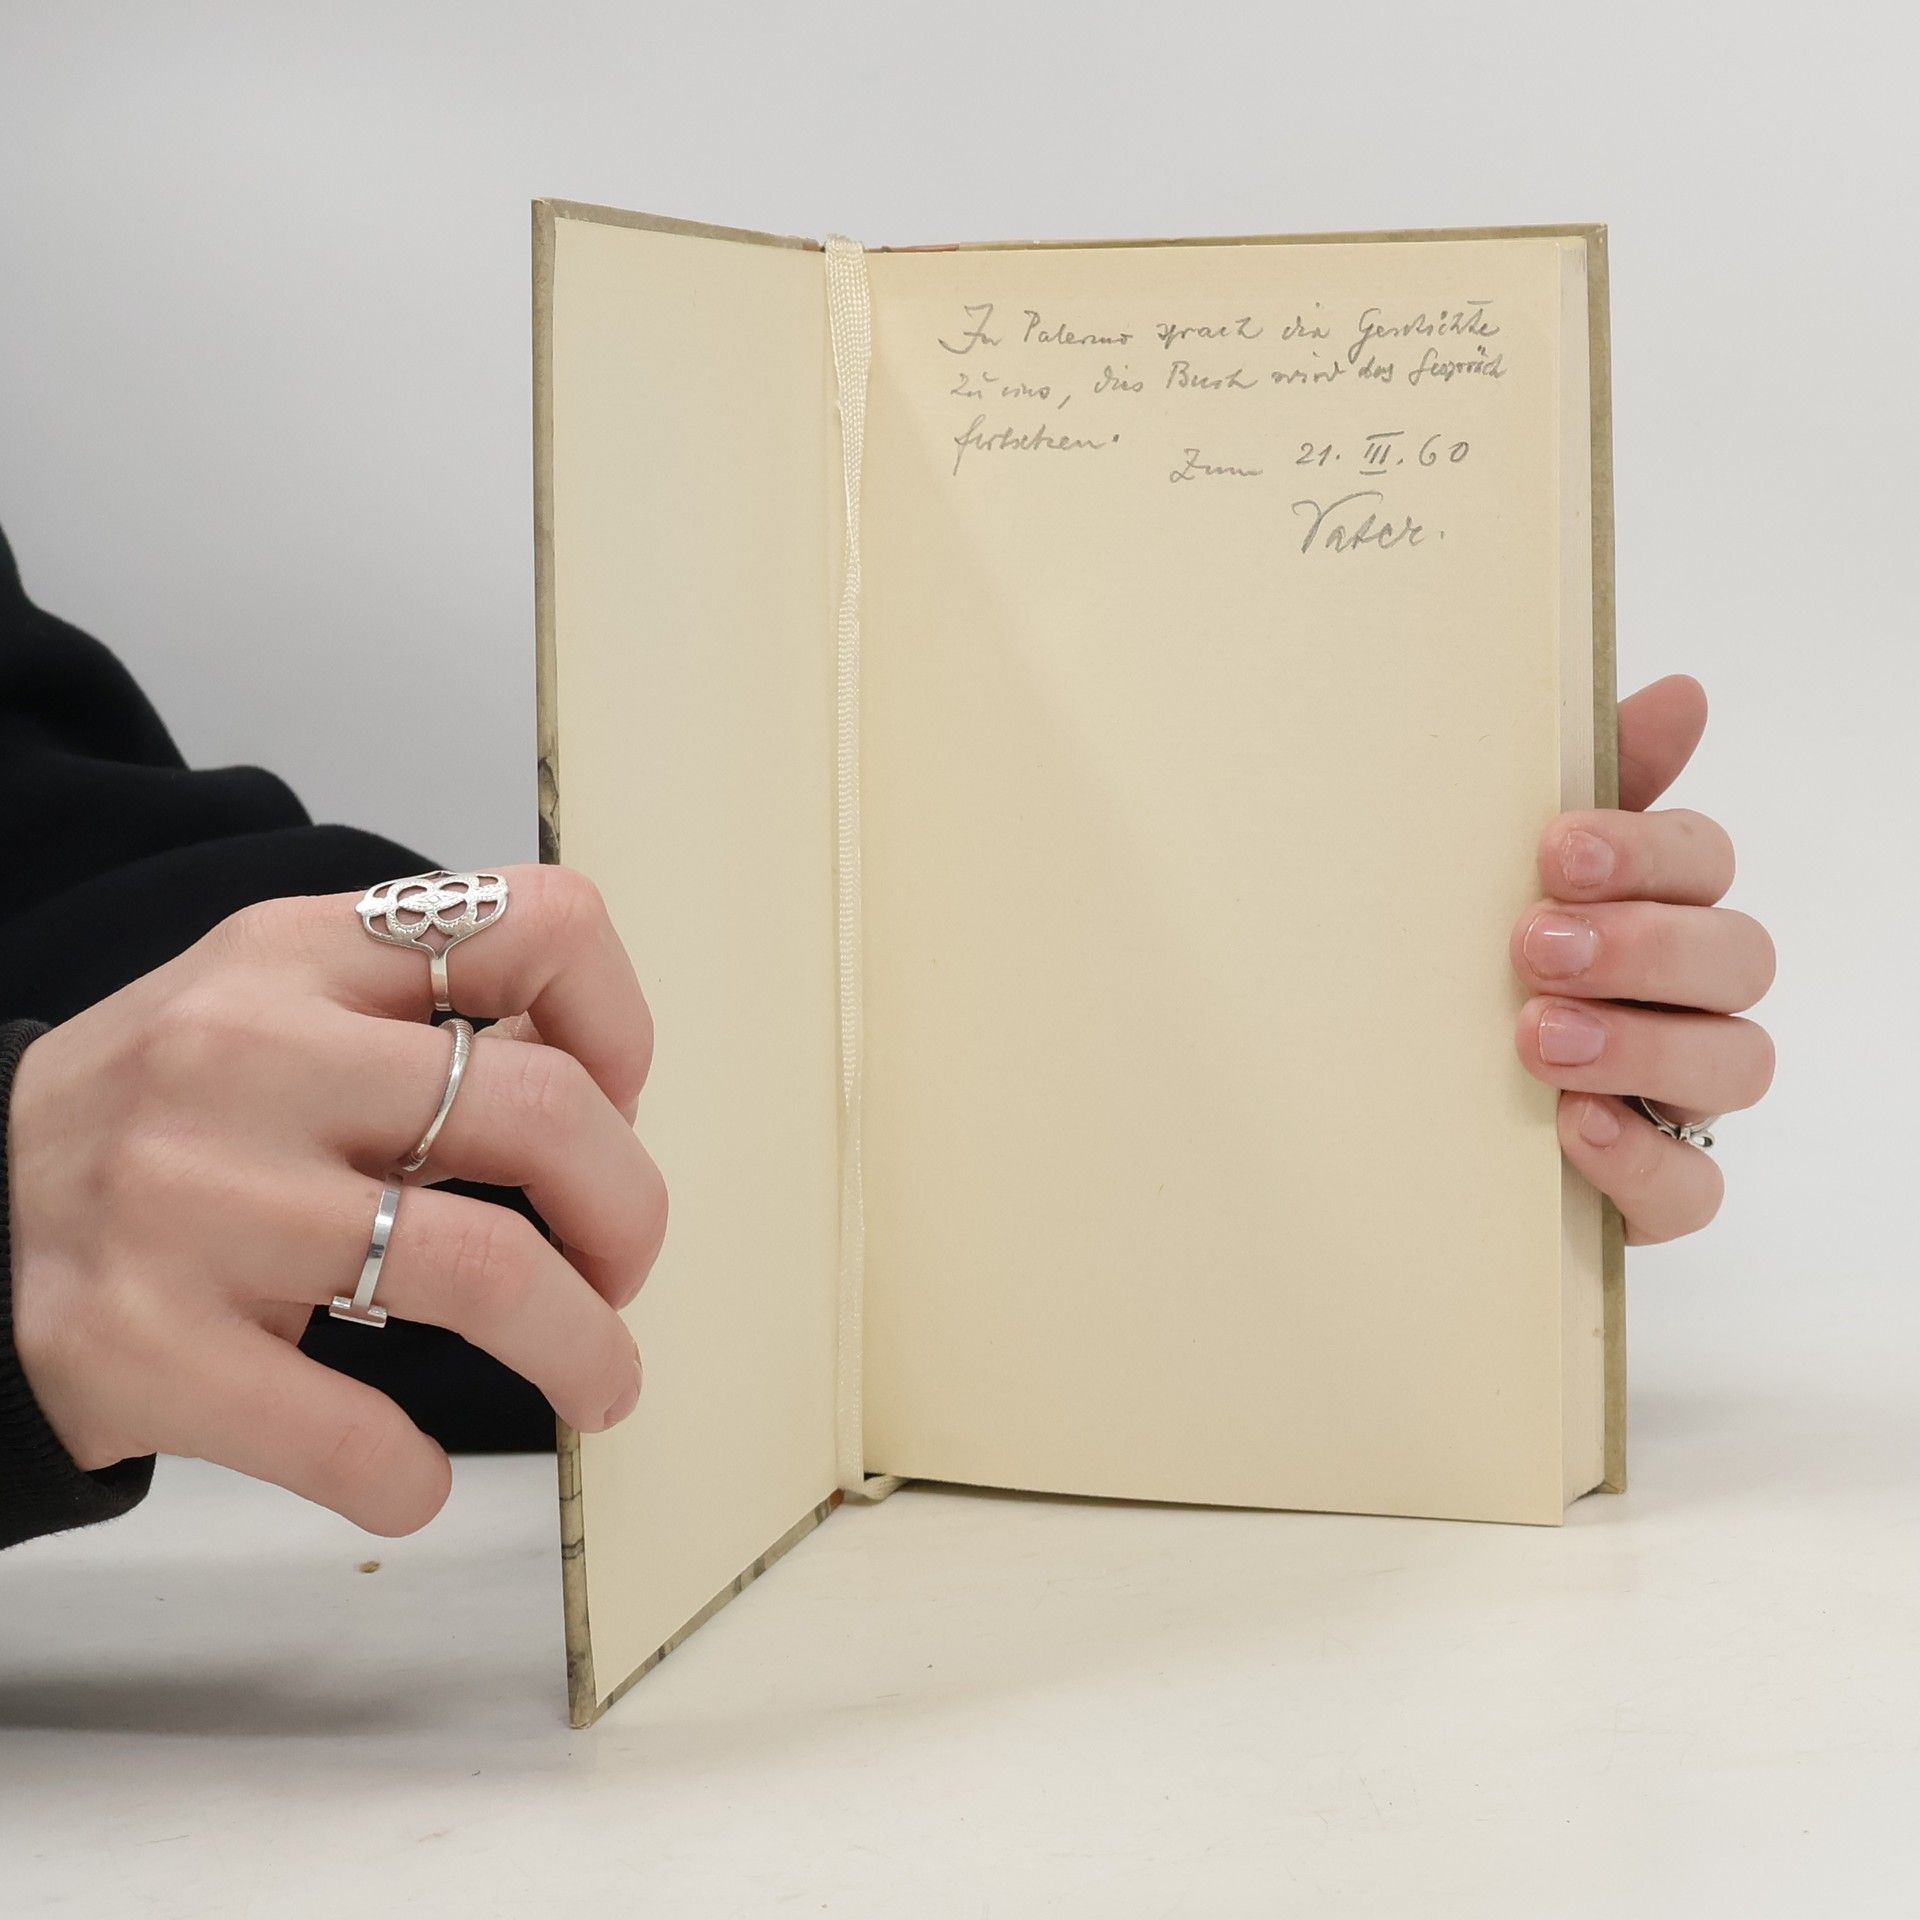 In Palermo sprach die Geschichte
zu uns, dies Buch wird das Gespräch
fortsetzen.
Zum 21. III. 60
Vater.